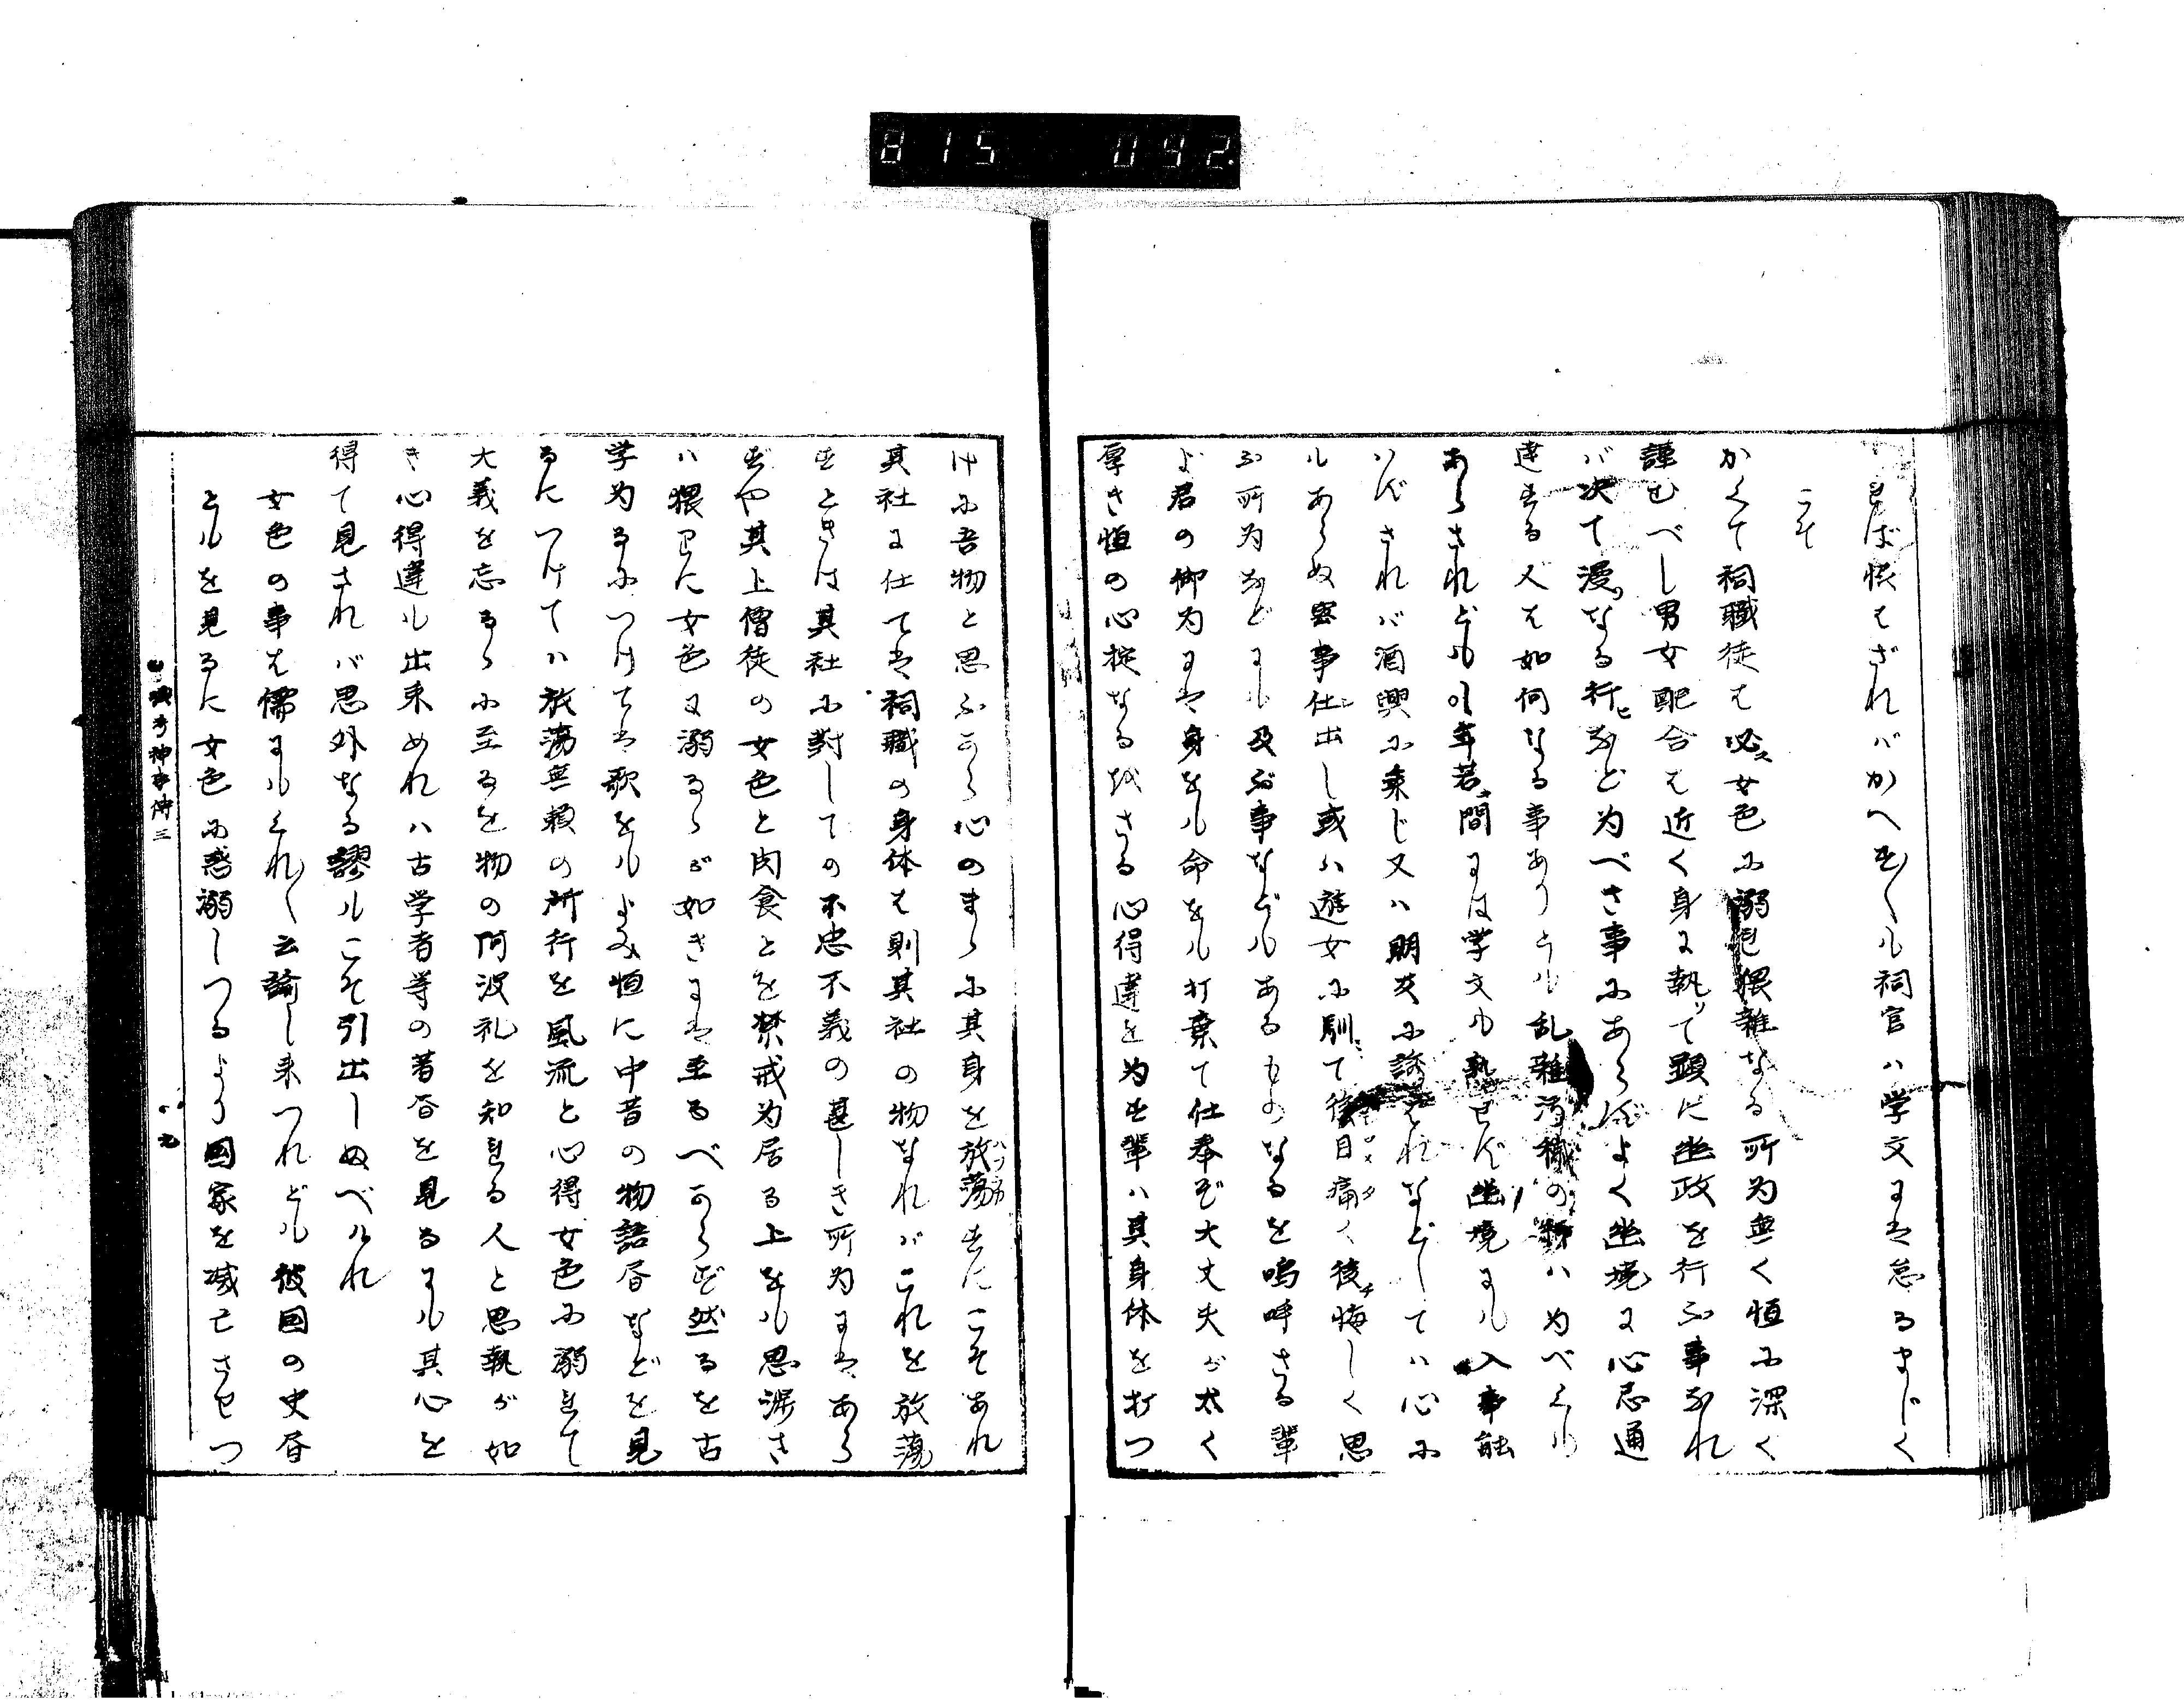 815 092
えば恨はざればかへす〲も祠官ハ学文にて怠るまじく
こそ
かくて祠職徒は必ス女色に溺れ猥雑なる所為無く恒に深く
謹むべし男女配合は近く身に執りて顕に幽政を行ふ事なれ
バ决て漫なる行ヒなど為べき事にあらずよく幽境に心忌通
達する人は如何なる事ありとも乱雑汚穢の類ハ為べくも
あらざれども年若キ間には学文も熟せず幽境にも入事能
ハずされバ酒興に乗じ又ハ朋友に誘はれなどしてハ心に
もあらぬ密事仕出し或ハ遊女に馴て後目痛く後悔しく思
ふ所為などにも及ぶ事などもあるものなるを嗚呼さる輩
よ君の御為には身をも命をも打棄て仕奉ぞ大丈夫が太く
厚き恒の心掟なるをさる心得違を為す輩ハ其身体を打つ
けに吾物と思ふから心のまゝに其身を放蕩すにこそあれ
其社に仕ては祠職の身体は則其社の物なればこれを放蕩
すときは其社に対しての不忠不義の甚しき所為にはあら
ずや其上僧徒の女色と肉食とを禁戒為居る上をも思はざ
ハ猥りに女色に溺るゝが如きには至るべからず然るを古
学為るにつけては歌をもよみ恒に中昔の物語書などを見
るにつけてハ放蕩無頼の所行を風流と心得女色に溺れて
大義を忘るゝに至るを物の阿波礼を知れる人と思執が如
き心得違も出来めれハ古学者等の著書を見るにも其心を
得て見ざれバ思外なる謬もこそ引出しぬべけれ
女色の事は儒にもくれ〲云諭し来つれども彼国の史書
ともを見るに女色に惑溺しつるより国家を滅亡させつ